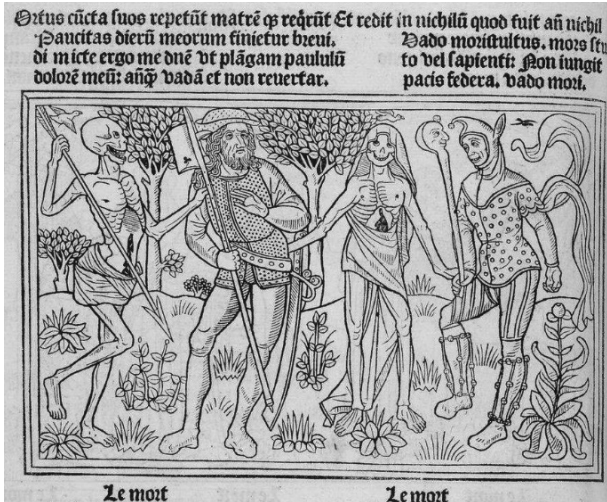 Ortus cūcta suos repetūt matrē q̄s reqrūt Et redit in nichilū quod fuit añ nichil
Paucitas dierū meorum finietur breui.
di micte ergo me dn̄e vt plāgam paululū
dolorē meū: añq̄ vadā et non reuertar.
Vado mori stultus. mors stu
to vel sapienti: Non iungit
pacis federa. vado mori.
Le mort
Le mort